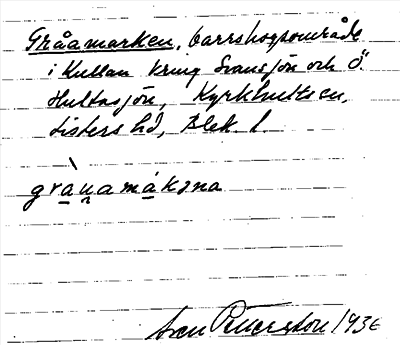 Gråamarken, barrskogsområde
i Kullan kring Svansjön och Ö.
Hultasjön, Kyrkhults sn,
Listers hd, Blek. l.
gràṇamákṇna
Ivar Petersson 1936